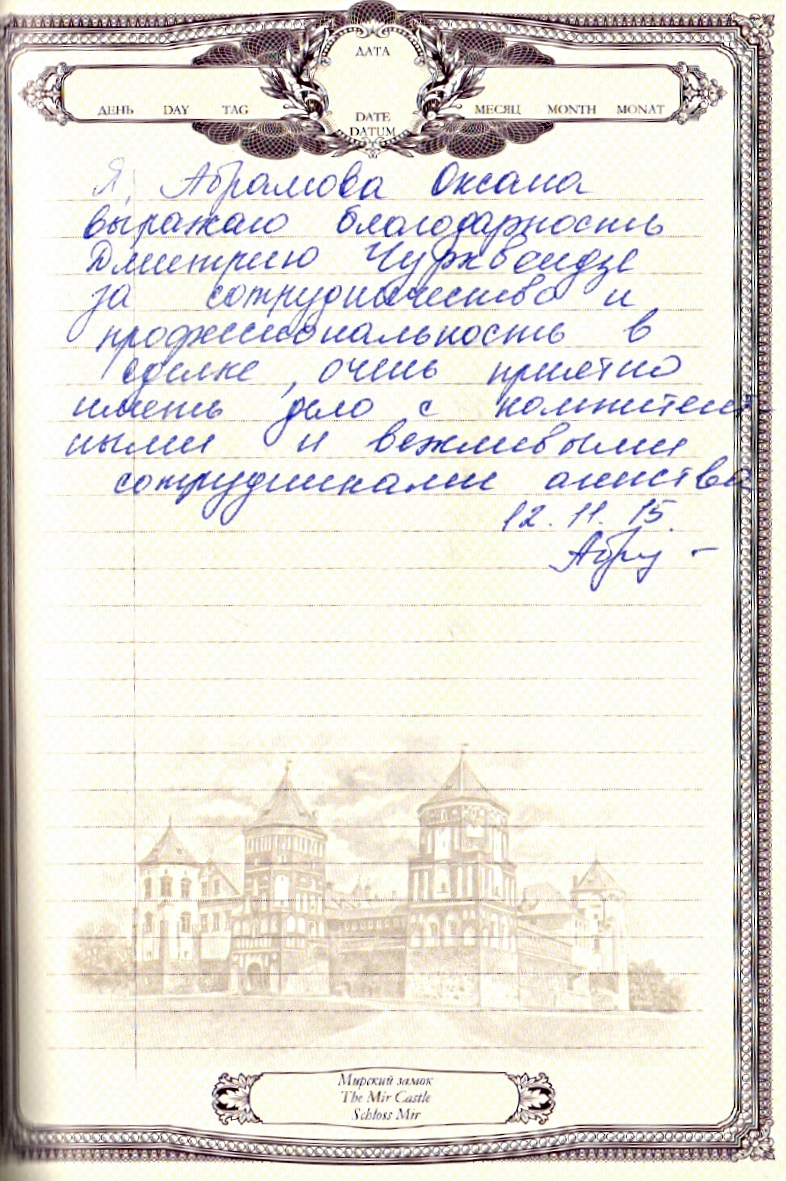 ДАТА
ДЕНЬ DAY TAG
DATE
DATUM
МЕСЯЦ MONTH MONAT
Я, Абрамова Оксана
выражаю благодарность
Дмитрию Чурквеидзе
за сотрудничество и
професиональность в
сделке, очень приятно
иметь дело с компитент-
ными и вежливыми
сотрудниками
12.11.15.
Мирский замок
The Mir Castle
Schloss Mir